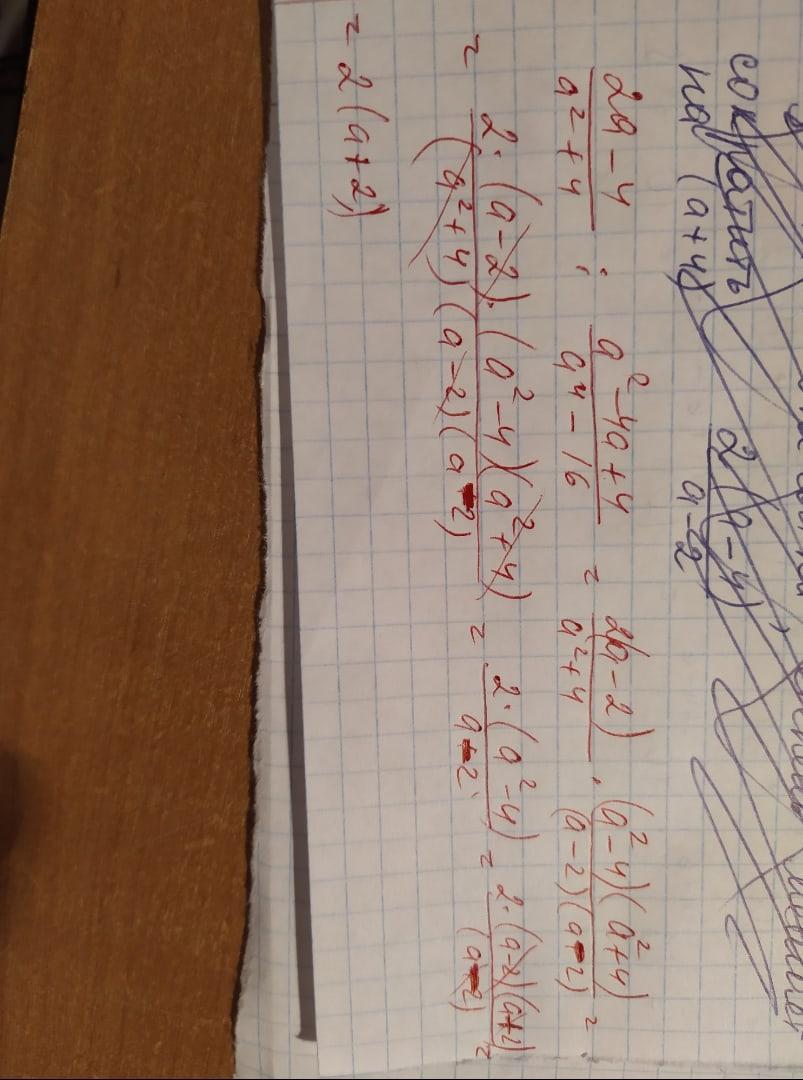 сократить
на (a+4) 2(a-4)
a-2
\frac{2a-4}{a^2+4} : \frac{a^2-4a+4}{a^4-16} = \frac{2(a-2)}{a^2+4} \cdot \frac{(a^2-4)(a^2+4)}{(a-2)(a-2)} =
= \frac{2\cdot(a-2)\cdot(a^2-4)(a^2+4)}{(a^2+4)(a-2)(a-2)} = \frac{2\cdot(a^2-4)}{a-2} = \frac{2\cdot(a-2)(a+2)}{(a-2)} =
= 2(a+2)